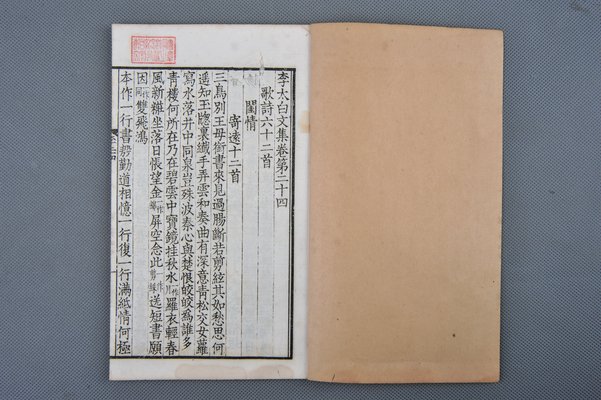 李太白文集卷第二十四
歌詩六十二首
閨情
寄遠十二首
三鳥別王母銜書來見過腸斷若剪絃其如愁思何
遥知玉窻裏纖手弄雲和奏曲有深意青松交女蘿
寫水落井中同泉豈殊波秦心與楚恨皎皎為誰多
青樓何所在乃在碧雲中寶鏡挂秋水一作月羅衣輕春
風新粧坐落日悵望金一作屏空念此一作剪綵送短書願
因一作同雙飛鴻
本作一行書殷勤道相憶一行復一行滿紙情何極